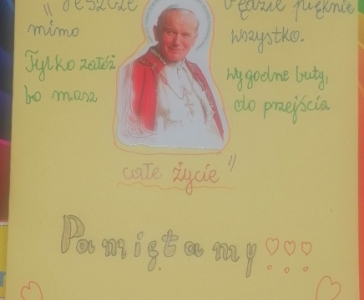 „Jeszcze będzie pięknie
mimo wszystko.
Tylko załóż wygodne buty,
bo masz do przejścia
całe życie"
Pamiętamy!!!